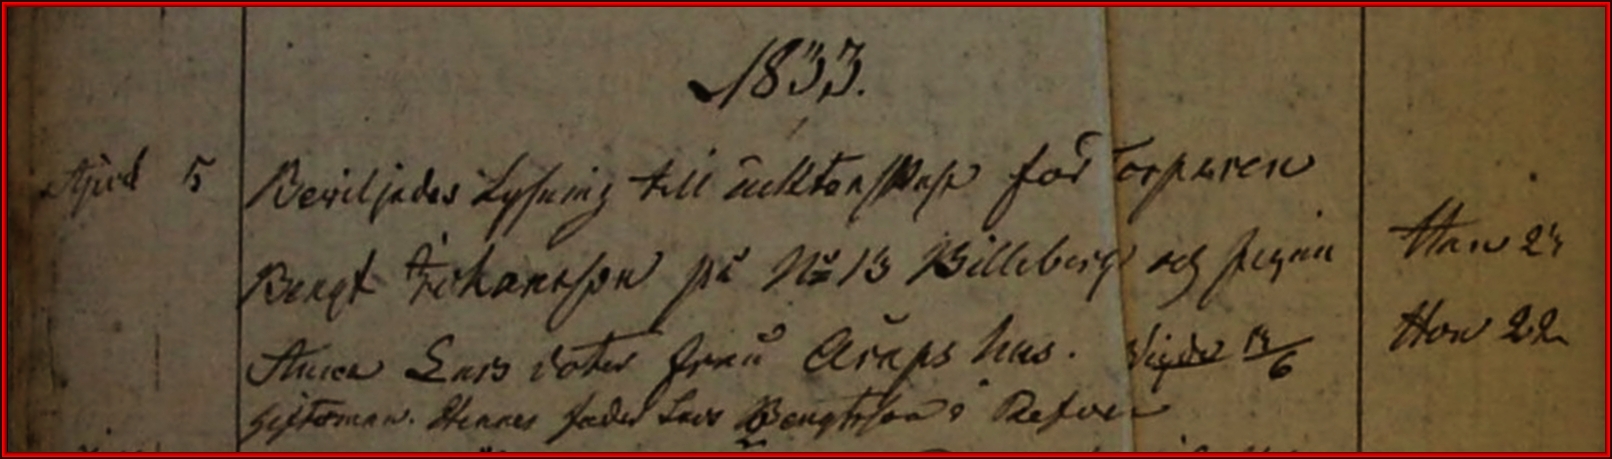 1833.
April 5 Beviljades Lysning till äcktenskap för Torparen
Bengt Johansson på No 13 Billeberg och pigan Han 23
Anna Lars doter från Arups hus. Vigde 13/6 Hon 22
Giftoman. Hennes fader Lars Bengtsson i